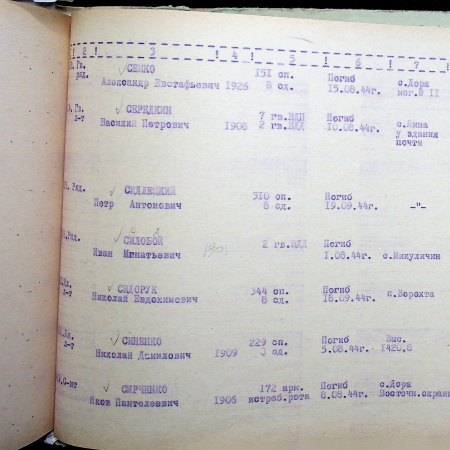 ! 2 ! 3 ! 4 ! 5 ! 6 ! 7 !
Гв. ✓СЕНКО 151 сп. Погиб с.Дора
ряд. Александр Евстафьевич 1926 8 сд. 15.08.44г. мог.№ 11
Гв. ✓СЕРЕДКИН 7 гв.ВДП Погиб с.Ямна
л-т Василий Петрович 1908 2 гв.ВДД 10.08.44г. у здания
почти
Ряд. ✓ 310 сп. Погиб
Петр Антонович 8 сд. 19.09.44г. -"-
Ряд. ✓СИЛОБОЙ 2 гв.ВДД Погиб
Иван Игнатьевич 1.08.44г. с.Микуличин
✓СИДОРУК 344 сп. Погиб п.Ворохта
л-т Николай Евдокимович 8 сд. 18.09.44г.
✓СИНЕНКО 229 сп. Погиб Выс.
л-т Николай Данилович 1909 сд. 5.08.44г. 1420,8
С-нт ✓СИРЧЕНКО 172 арм. Погиб с.Дора
Яков Пантелеевич 1906 истреб.рота 8.08.44г. Восточн.окраин